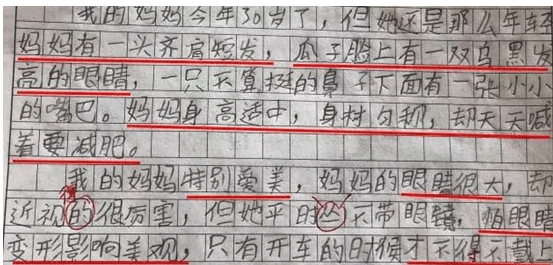 我的妈妈今年30岁了，但她还是那么年轻
妈妈有一头齐肩短发，瓜子脸上有一双乌黑发
亮的眼睛，一只不算挺的鼻子下面有一张小小
的嘴巴。妈妈身高适中，身材匀称，却天天喊
着要减肥。
得
我的妈妈特别爱美，妈妈的眼睛很大，却
近视的很厉害，但她平时不带眼镜，怕眼睛
变形影响美观，只有开车的时候才不得不戴上